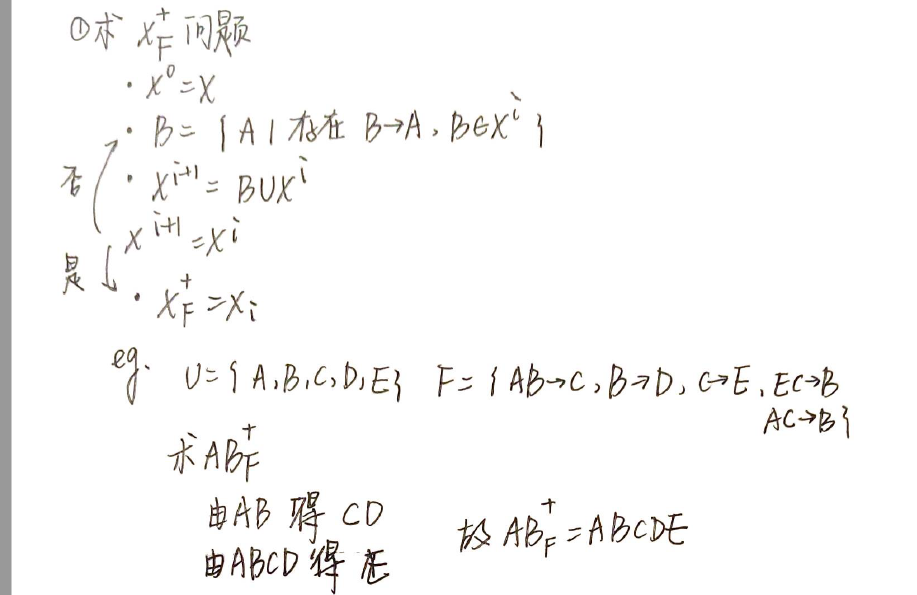 ①求 X_F^+ 问题
· X^0 = X
· B = { A | 存在 B→A, B∈X^i }
否 · X^{i+1} = B∪X^i
X^{i+1} = X^i
是 · X_F^+ = X_i
eg. U={A,B,C,D,E} F={AB→C, B→D, C→E, EC→B
AC→B}
求 AB_F^+
由AB 得 CD
由ABCD 得 E 故 AB_F^+ = ABCDE